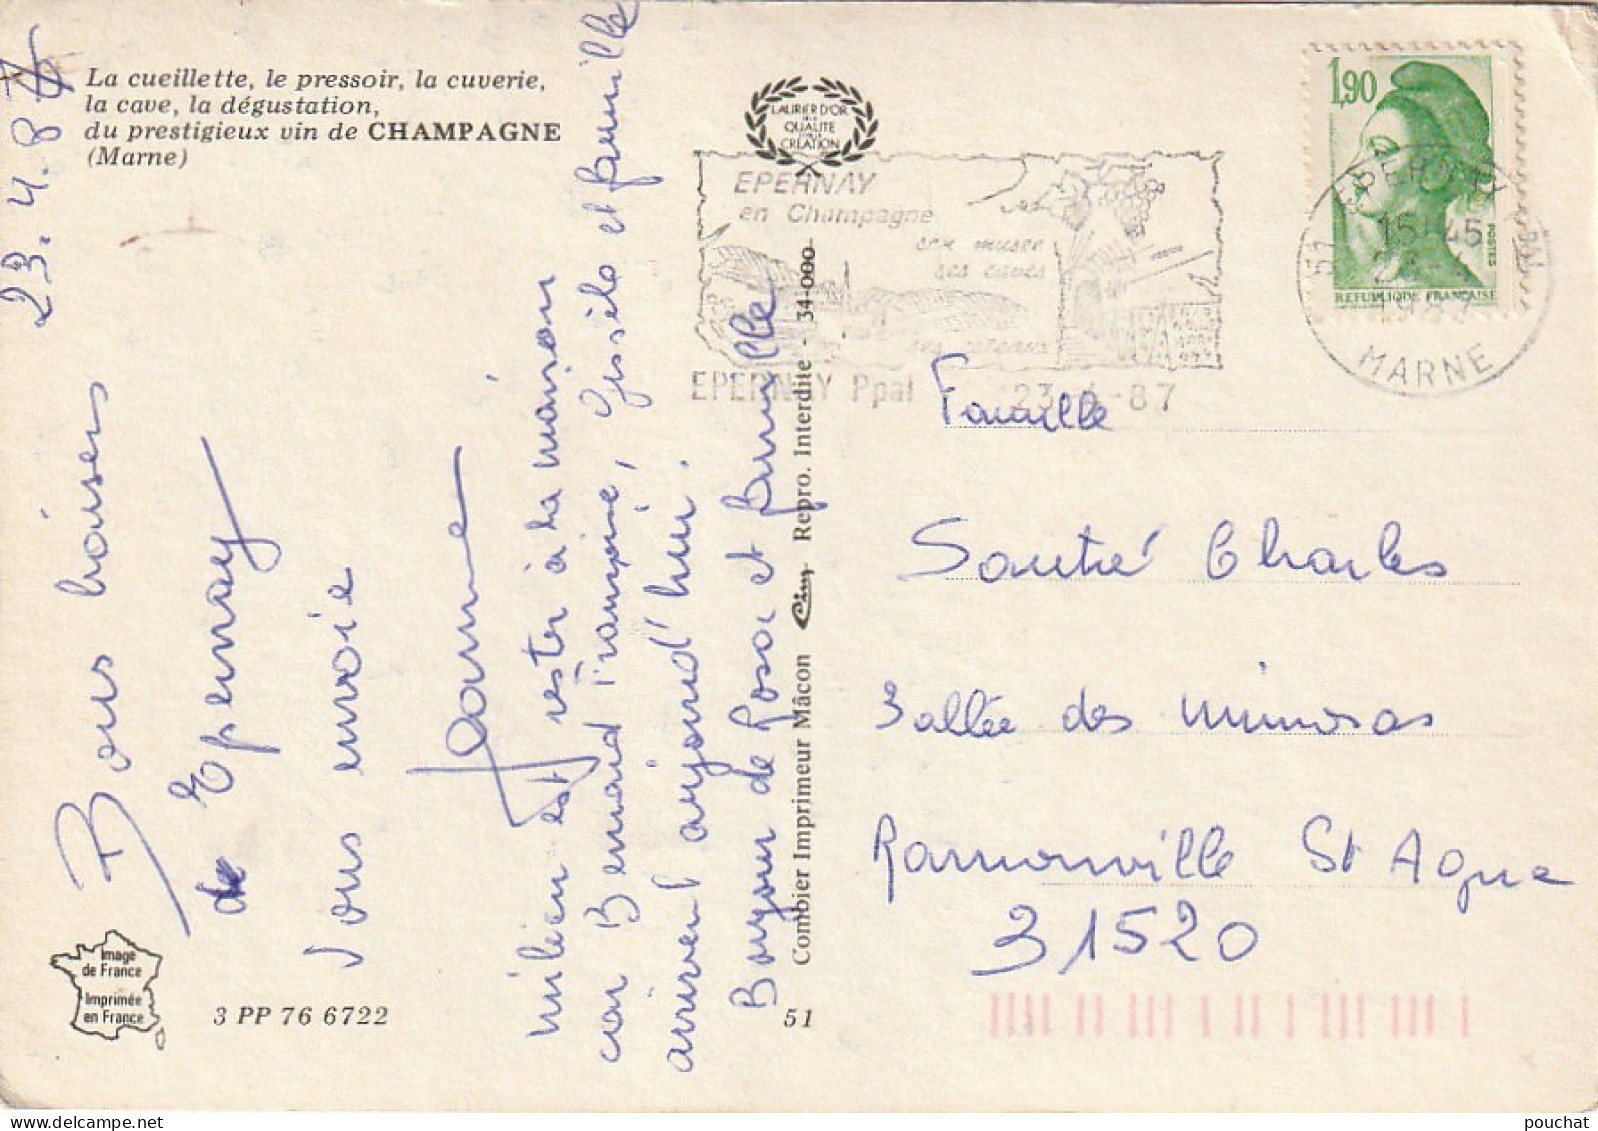 La cueillette, le pressoir, la cuverie,
la cave, la dégustation,
du prestigieux vin de CHAMPAGNE
(Marne)
23.4.87
Bons baisers
de Epernay
vous envoie
Jeanne
milien est rester à la maison
car Bernard Françoise, Gisèle et famille
arrivent aujourd'hui.
Bonjour de Rosa et famille
LAURIER D'OR
DE LA
QUALITE
CREATION
EPERNAY
en Champagne
son musée
ses caves
ses coteaux
EPERNAY Ppal
23-4-87
1,90
POSTES
REPUBLIQUE FRANÇAISE
51 EPERNAY
15H45
23-4
1987
MARNE
Famille
Soutré Charles
3 allée des mimosas
Ramonville St Agne
31520
Combier Imprimeur Mâcon Cim Repro. Interdite - 34-000
Image
de France
Imprimée
en France
3 PP 76 6722
51
pouchat